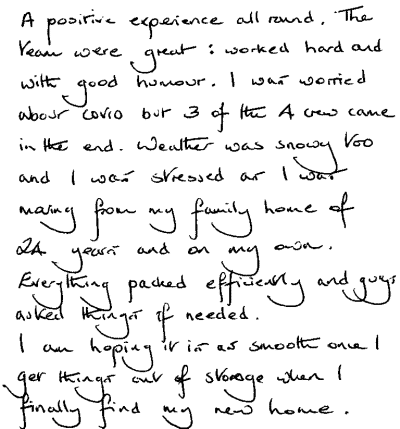 A positive experience all round. The
team were great : worked hard and
with good humour. I was worried
about covid but 3 of the 4 crew came
in the end. Weather was snowy too
and I was stressed as I was
moving from my family home of
24 years and on my own.
Everything packed efficiently and guys
asked things if needed.
I am hoping it is as smooth once I
get things out of storage when I
finally find my new home.